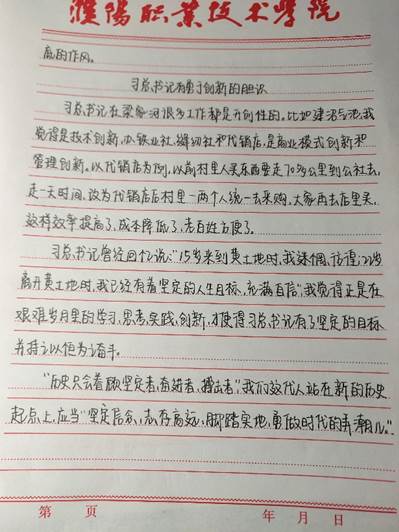 濮阳职业技术学院
底的作风。
习总书记有勇于创新的胆识
习总书记在梁家河很多工作都是开创性的。比如建沼气池,我
觉得是技术创新,办铁业社、缝纫社和代销店,是商业模式创新和
管理创新。以代销店为例,以前村里人买东西要走70多公里到公社去,
走一天时间,改为代销店后村里一两个人统一去采购,大家再去店里买,
这样效率提高了,成本降低了,老百姓方便了。
习总书记曾经回忆说:“15岁来到黄土地时,我迷惘、彷徨;22岁
离开黄土地时,我已经有着坚定的人生目标,充满自信”,我觉得正是在
艰难岁月里的学习、思考、实践、创新,才使得习总书记有了坚定的目标
并持之以恒为之奋斗。
“历史只会眷顾坚定者、奋进者、搏击者”,我们这代人站在新的历史
起点上,应当“坚定信念,志存高远,脚踏实地,勇做时代的弄潮儿。”
第 页 年 月 日